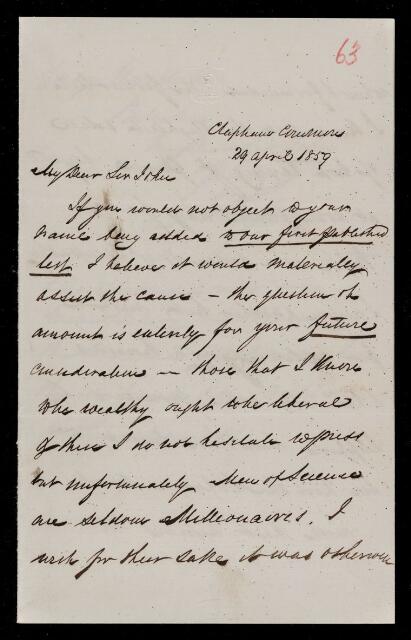 63
Clapham Common
29 April 1859
My Dear Sir John
If you would not object to your
name being added to our first published
list I believe it would materially
assist the cause – the question of
amount is entirely for your future
consideration – those that I know
to be wealthy ought to be liberal
of them I do not hesitate to press
but unfortunately Men of Science
are seldom Millionaires. I
wish for their sake it was otherwise